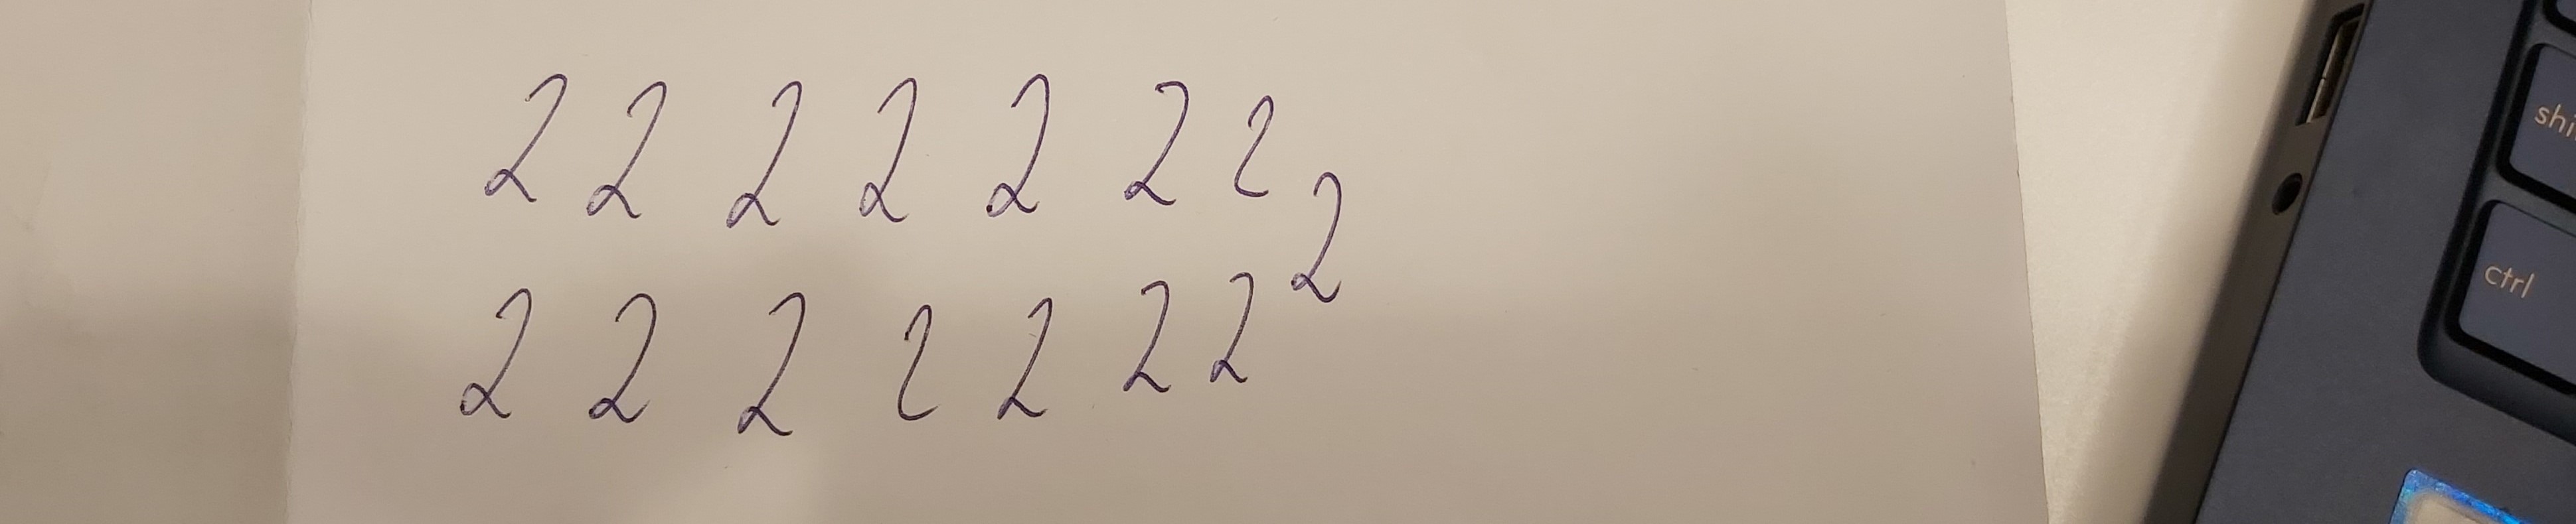 2 2 2 2 2 2 2
2
2 2 2 2 2 2 2
ctrl